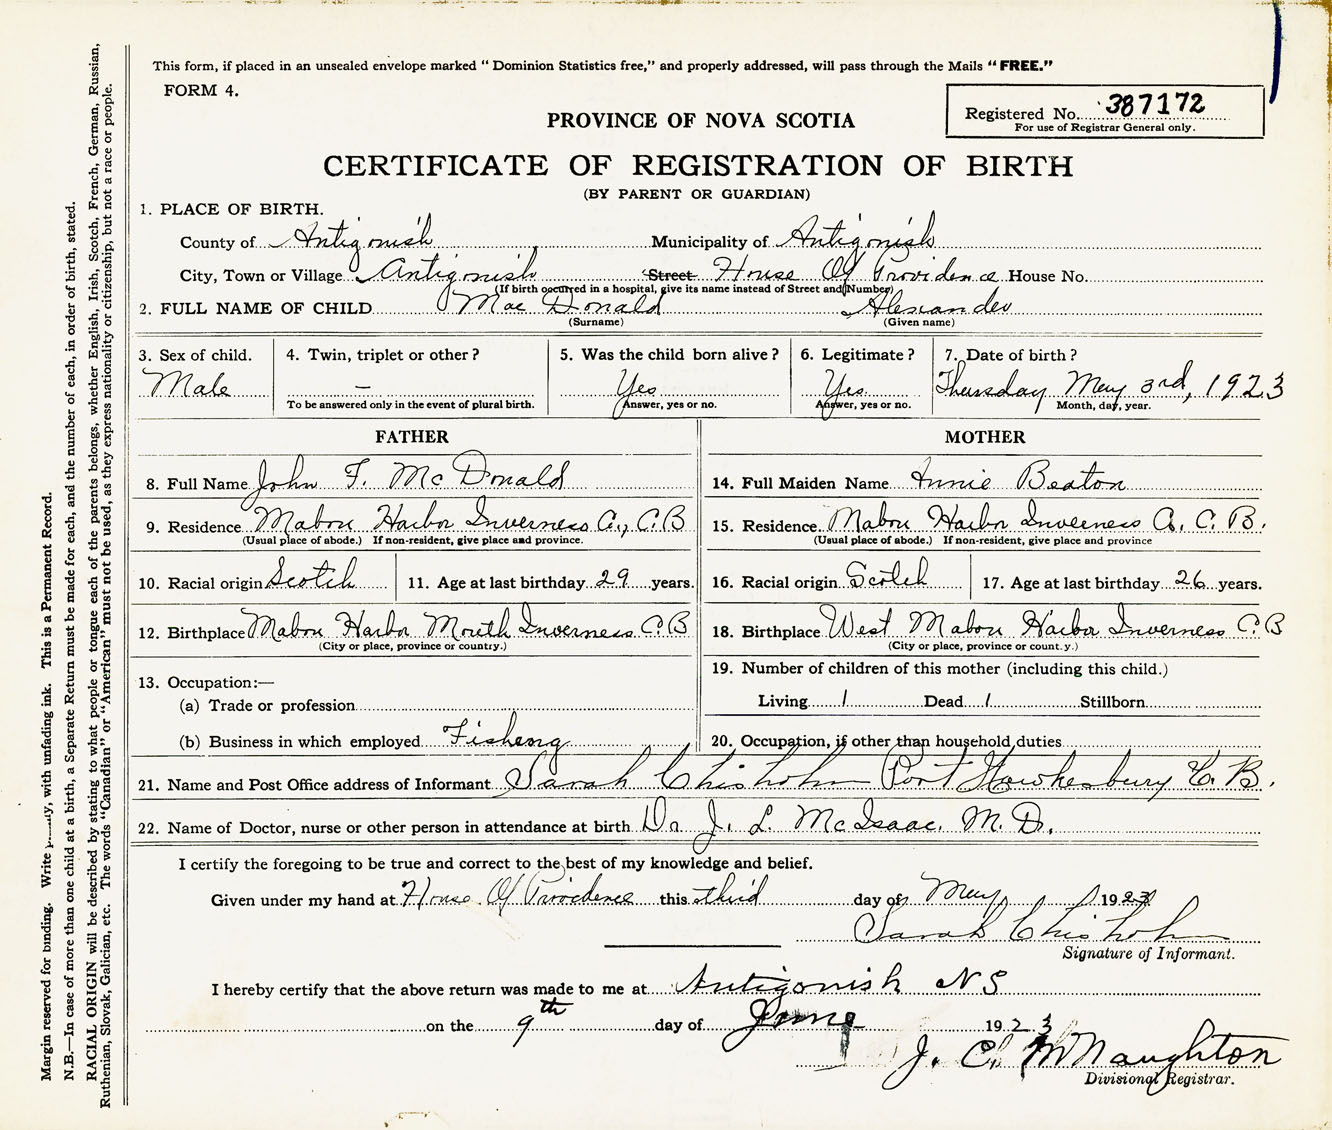 This form, if placed in an unsealed envelope marked "Dominion Statistics free," and properly addressed, will pass through the Mails "FREE."
FORM 4.
Registered No. 387172
For use of Registrar General only.
PROVINCE OF NOVA SCOTIA
CERTIFICATE OF REGISTRATION OF BIRTH
(BY PARENT OR GUARDIAN)
1. PLACE OF BIRTH.
County of Antigonish Municipality of Antigonish
City, Town or Village Antigonish Street House Of Providence House No.
(If birth occurred in a hospital, give its name instead of Street and Number)
2. FULL NAME OF CHILD Mac Donald Alexander
(Surname) (Given name)
3. Sex of child. 4. Twin, triplet or other? 5. Was the child born alive? 6. Legitimate? 7. Date of birth?
Male — Yes Yes Thursday May 3rd, 1923
To be answered only in the event of plural birth. Answer, yes or no. Answer, yes or no. Month, day, year.
FATHER
8. Full Name John F. McDonald
9. Residence Mabou Harbor Inverness Co., C.B
(Usual place of abode.) If non-resident, give place and province.
10. Racial origin Scotch 11. Age at last birthday 29 years.
12. Birthplace Mabou Harbor Mouth Inverness C.B
(City or place, province or country.)
13. Occupation:—
(a) Trade or profession
(b) Business in which employed Fisheng
MOTHER
14. Full Maiden Name Annie Beaton
15. Residence Mabou Harbor Inverness Co. C. B.
(Usual place of abode.) If non-resident, give place and province
16. Racial origin Scotch 17. Age at last birthday 26 years.
18. Birthplace West Mabou Harbor Inverness C.B
(City or place, province or count.y.)
19. Number of children of this mother (including this child.)
Living 1 Dead 1 Stillborn
20. Occupation, if other than household duties
21. Name and Post Office address of Informant Sarah Chisholm Port Hawkesbury C. B.
22. Name of Doctor, nurse or other person in attendance at birth Dr J. L. McIsaac. M. D.
I certify the foregoing to be true and correct to the best of my knowledge and belief.
Given under my hand at House Of Providence this third day of May 1923
Sarah Chisholm
Signature of Informant.
I hereby certify that the above return was made to me at Antigonish N S
on the 9th day of June 1923
J. C. McNaughton
Divisional Registrar.
Margin reserved for binding. Write with unfading ink. This is a Permanent Record.
N.B.—In case of more than one child at a birth, a Separate Return must be made for each, and the number of each, in order of birth, stated.
RACIAL ORIGIN will be described by stating to what people or tongue each of the parents belongs, whether English, Irish, Scotch, French, German, Russian,
Ruthenian, Slovak, Galician, etc. The words "Canadian" or "American" must not be used, as they express nationality or citizenship, but not a race or people.